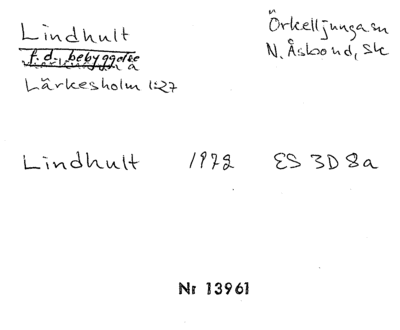 Lindhult
Örkelljunga sn
f.d. bebyggelse
N. Åsbond, Sk
å
Lärkesholm 1:27
Lindhult 1972 ES 3D 8a
Nr 13961